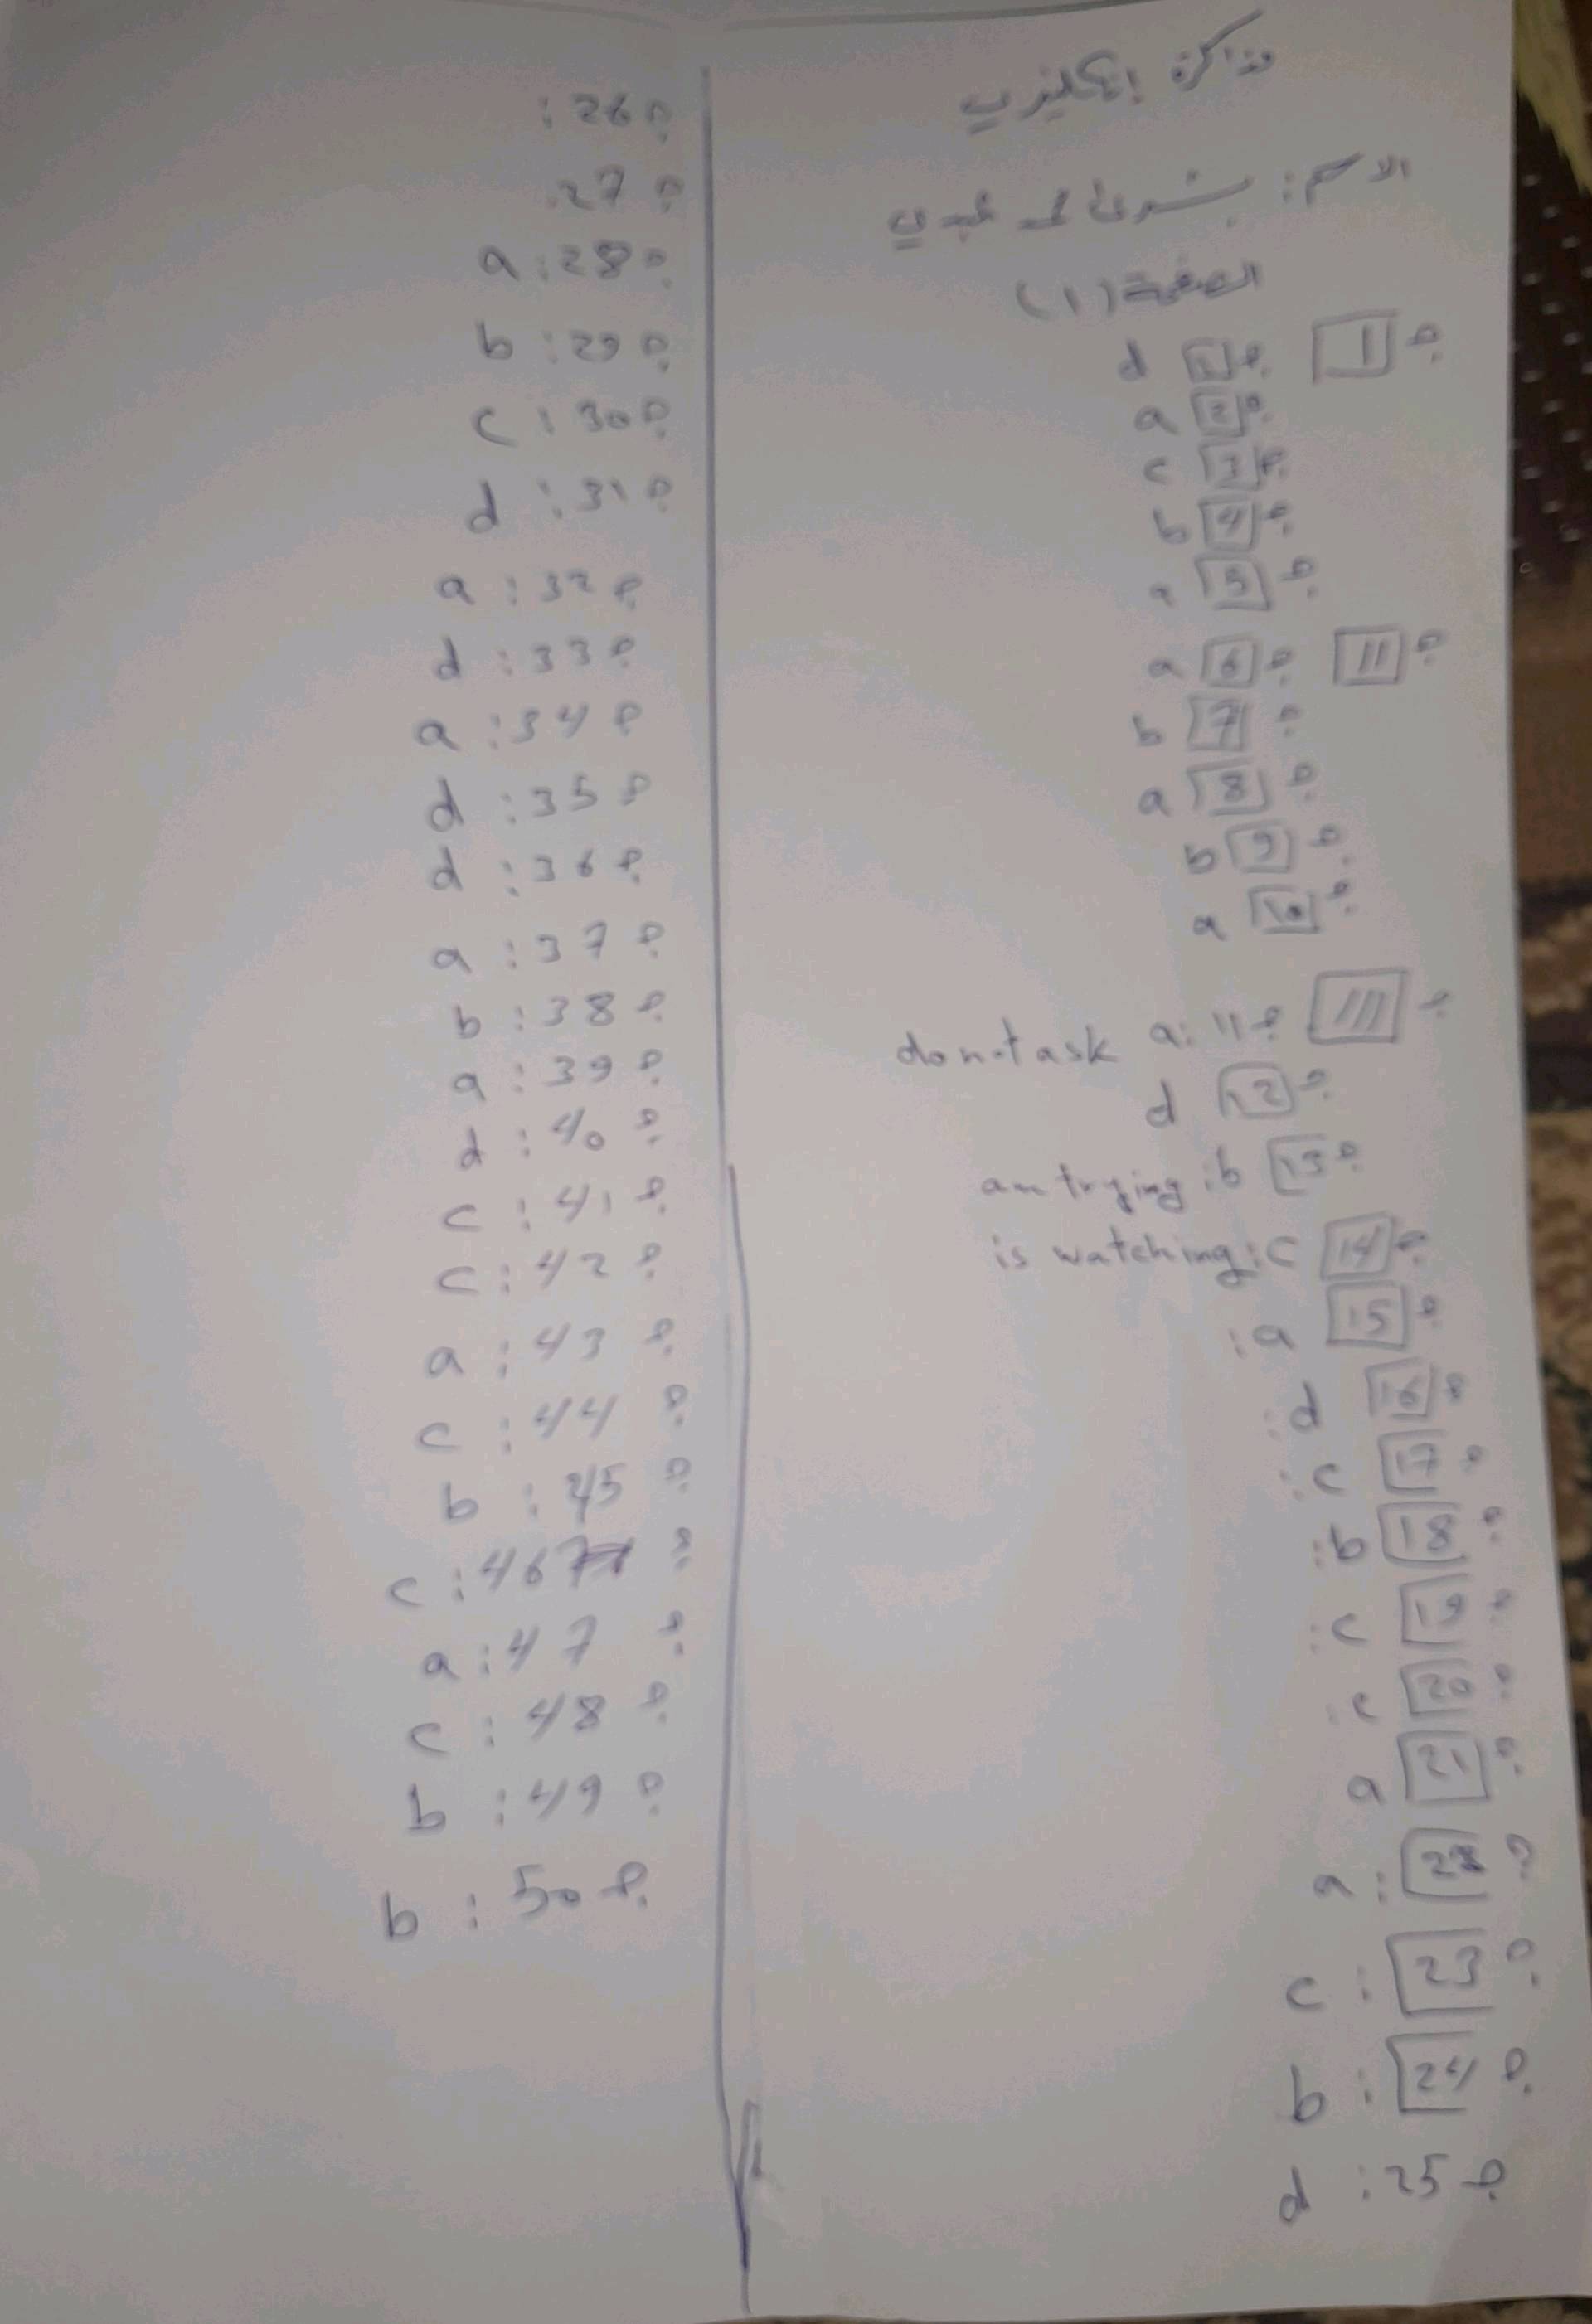 مذاكرة إنكليزي
الاسم: بشرى محمد
الصفحة (١)
؟ 1 ؟ 1 d
؟ 2 a
؟ 3 c
؟ 4 b
؟ 5 a
؟ 11 ؟ 6 a
؟ 7 b
؟ 8 a
؟ 9 b
؟ 10 a
؟ 111 ؟ 11 :a do not ask
؟ 12 d
؟ 13 b: am trying
؟ 14 c: is watching
؟ 15 a:
؟ 16 d:
؟ 17 c:
؟ 18 b:
؟ 19 c:
؟ 20 c:
؟ 21 a
؟ 22 : a
؟ 23 : c
؟ 24 : b
؟ 25 : d
؟ 26 :
؟ 27 .
؟ 28 : a
؟ 29 : b
؟ 30 : c
؟ 31 : d
؟ 32 : a
؟ 33 : d
؟ 34 : a
؟ 35 : d
؟ 36 : d
؟ 37 : a
؟ 38 : b
؟ 39 : a
؟ 40 : d
؟ 41 : c
؟ 42 : c
؟ 43 : a
؟ 44 : c
؟ 45 : b
؟ 46 : c
؟ 47 : a
؟ 48 : c
؟ 49 : b
؟ 50 : b